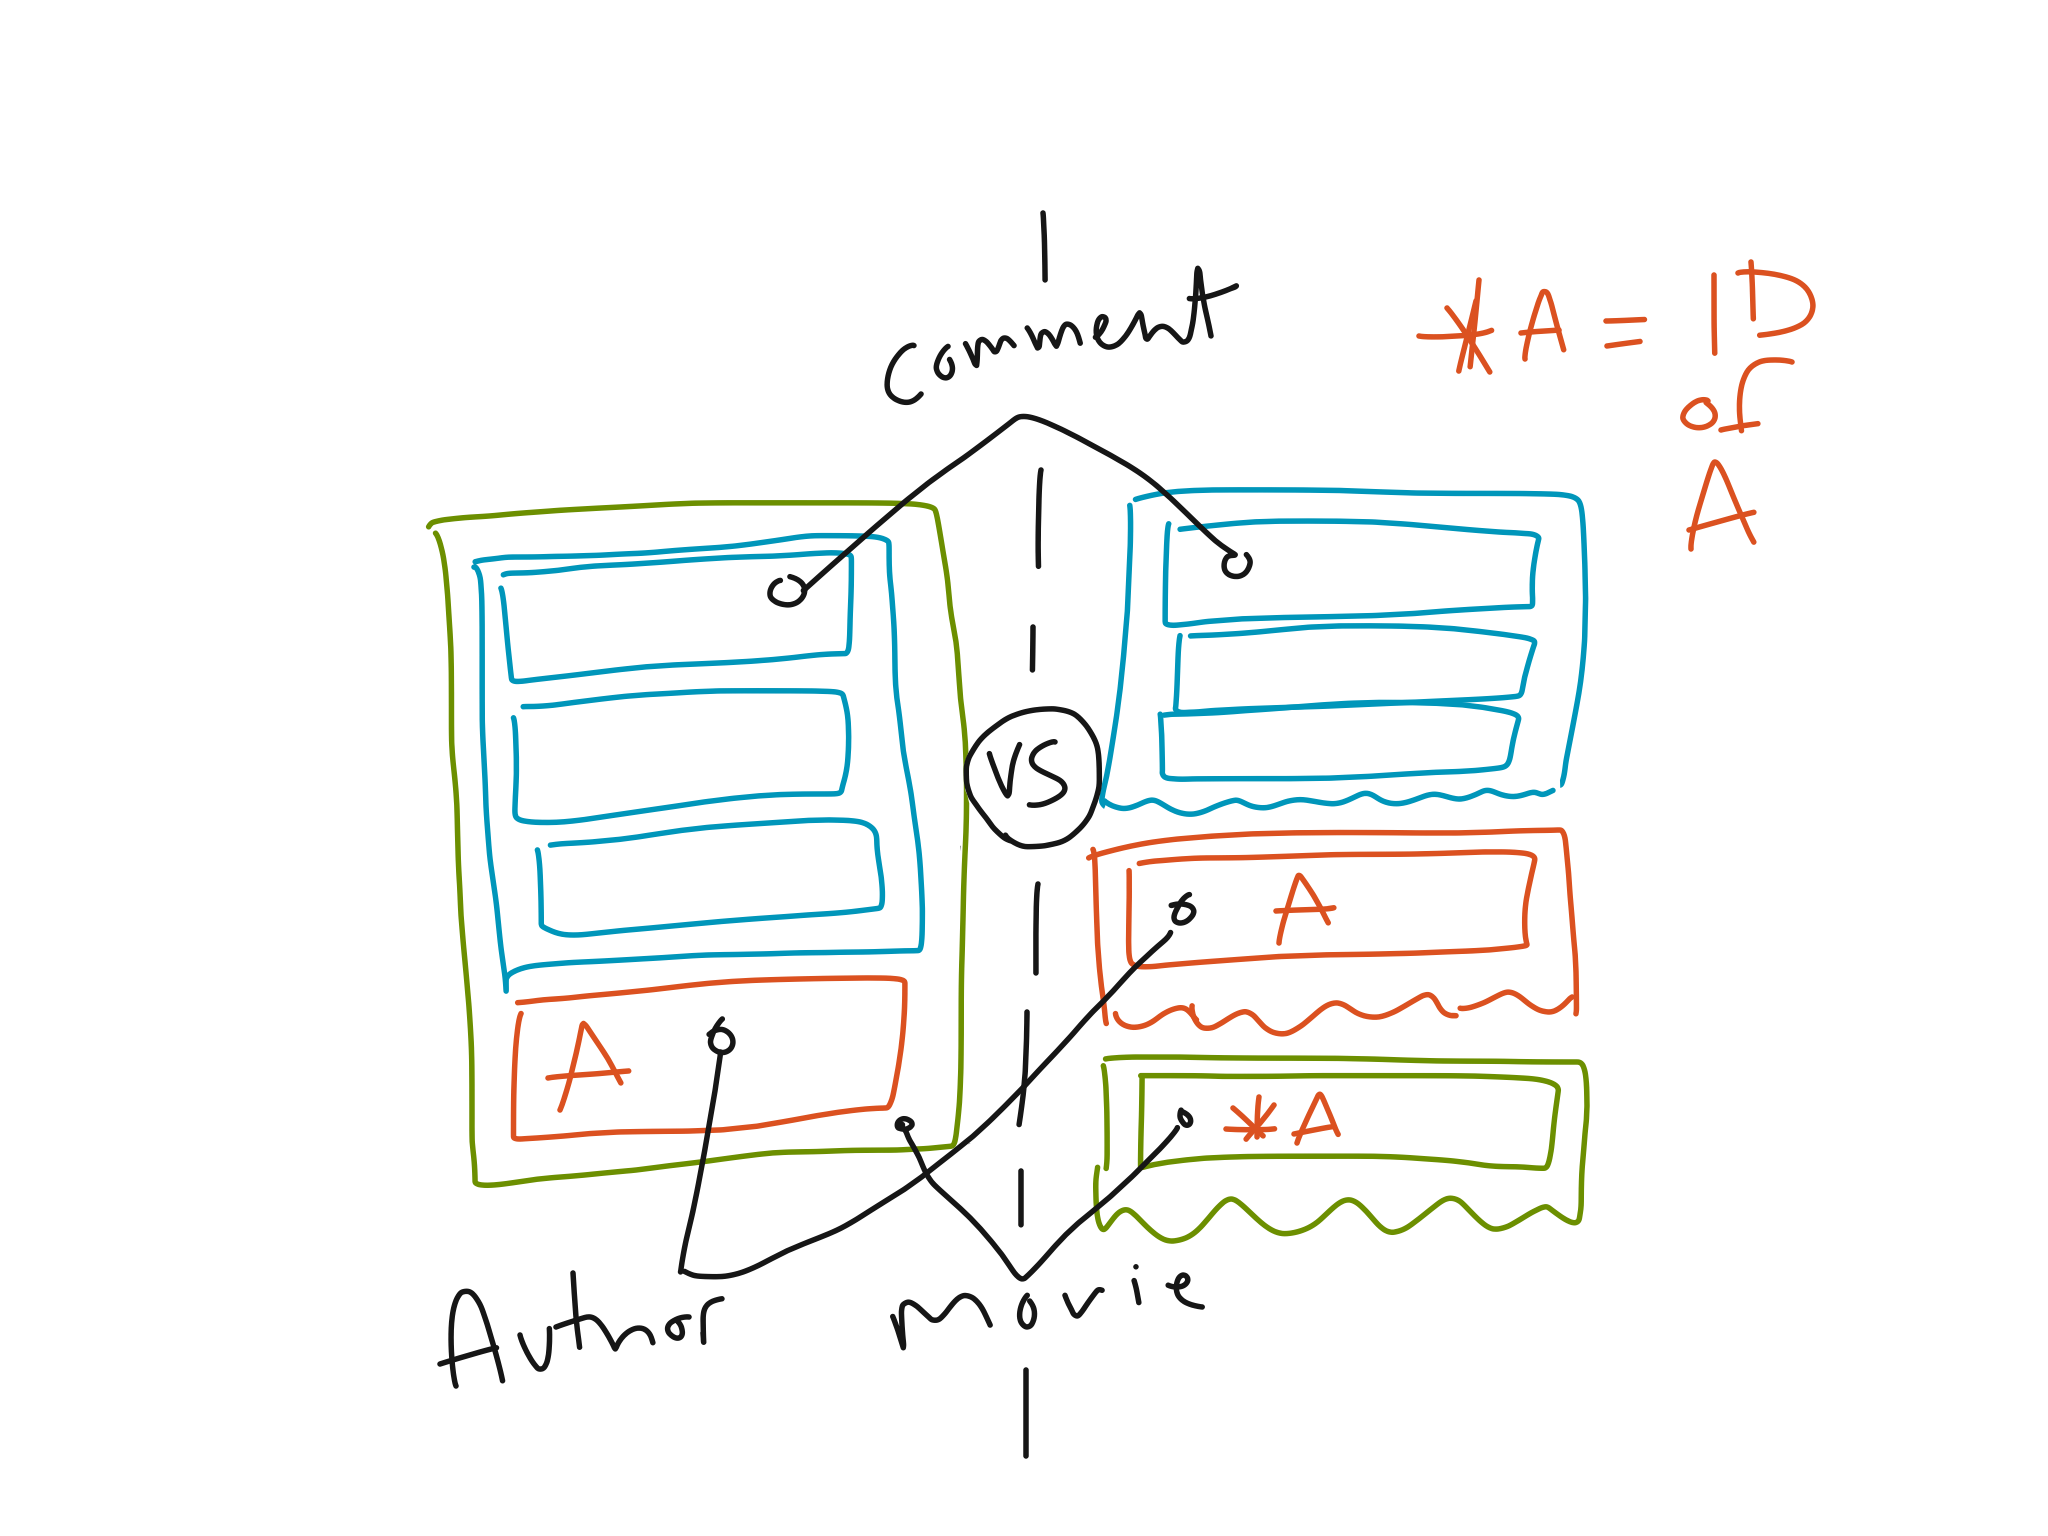 Comment
*A = ID
of
A
VS
A
A
*A
Author
movie